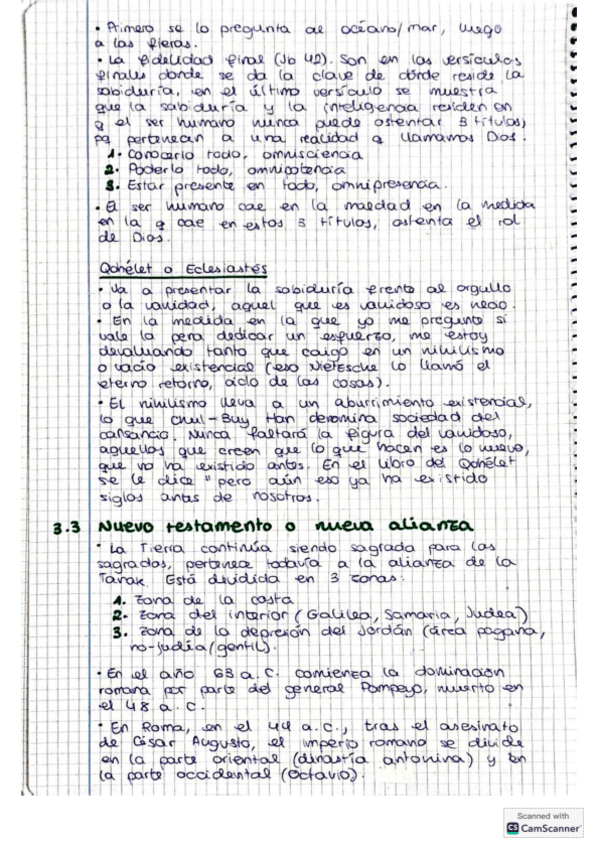 • Primero se lo pregunta al océano/mar, luego
a las fieras.
• La fidelidad final (Jb 42). Son en los versículos
finales donde se da la clave de dónde reside la
sabiduría, en el último versículo se muestra
que la sabiduría y la inteligencia residen en
q el ser humano nunca puede ostentar 3 títulos,
pq pertenecen a una realidad q llamamos Dios.
1. Conocerlo todo, omnisciencia
2. Poderlo todo, omnipotencia
3. Estar presente en todo, omnipresencia.
• El ser humano cae en la maldad en la medida
en la q cae en estos 3 títulos, ostenta el rol
de Dios.
Qohélet o Eclesiastés
• Va a presentar la sabiduría frente al orgullo
o la vanidad, aquel que es vanidoso es necio.
• En la medida en la que yo me pregunto si
vale la pena dedicar un esfuerzo, me estoy
devaluando tanto que caigo en un nihilismo
o vacío existencial (eso Nietzsche lo llamó el
eterno retorno, ciclo de las cosas).
• El nihilismo lleva a un aburrimiento existencial,
lo que Chul-Buy Han denomina sociedad del
cansancio. Nunca faltará la figura del vanidoso,
aquellos que creen que lo que hacen es lo nuevo,
que no ha existido antes. En el libro del Qohélet
se le dice "pero aún eso ya ha existido
siglos antes de nosotros.
3.3 Nuevo testamento o nueva alianza
• La Tierra continúa siendo sagrada para los
sagrados, pertenece todavía a la alianza de la
Tanak. Está dividida en 3 zonas:
1. Zona de la costa
2. Zona del interior (Galilea, Samaria, Judea)
3. Zona de la depresión del Jordán (área pagana,
no-judía/gentil).
• En el año 63 a.C. comienza la dominación
romana por parte del general Pompeyo, muerto en
el 48 a.C.
• En Roma, en el 44 a.C., tras el asesinato
de César Augusto, el imperio romano se divide
en la parte oriental (dinastía antonina) y en
la parte occidental (Octavio).
Scanned with
CS CamScanner